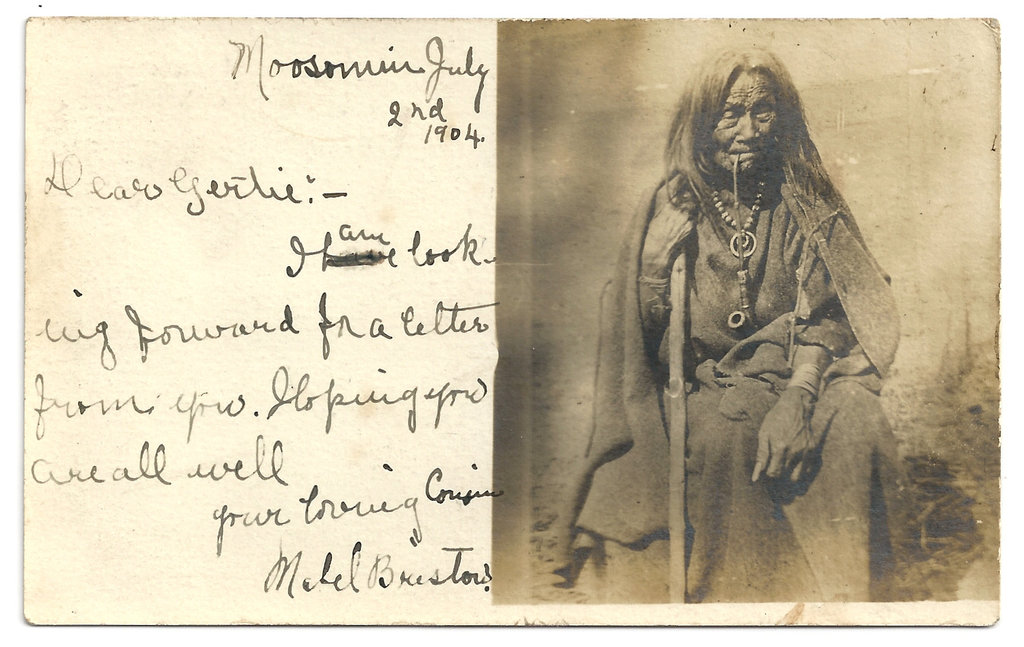 Moosomin July
2nd
1904.
Dear Gertie:—
am
I have look
ing forward for a letter
from you. Hoping you
are all well
your loving Cousin
Mabel Bristow.